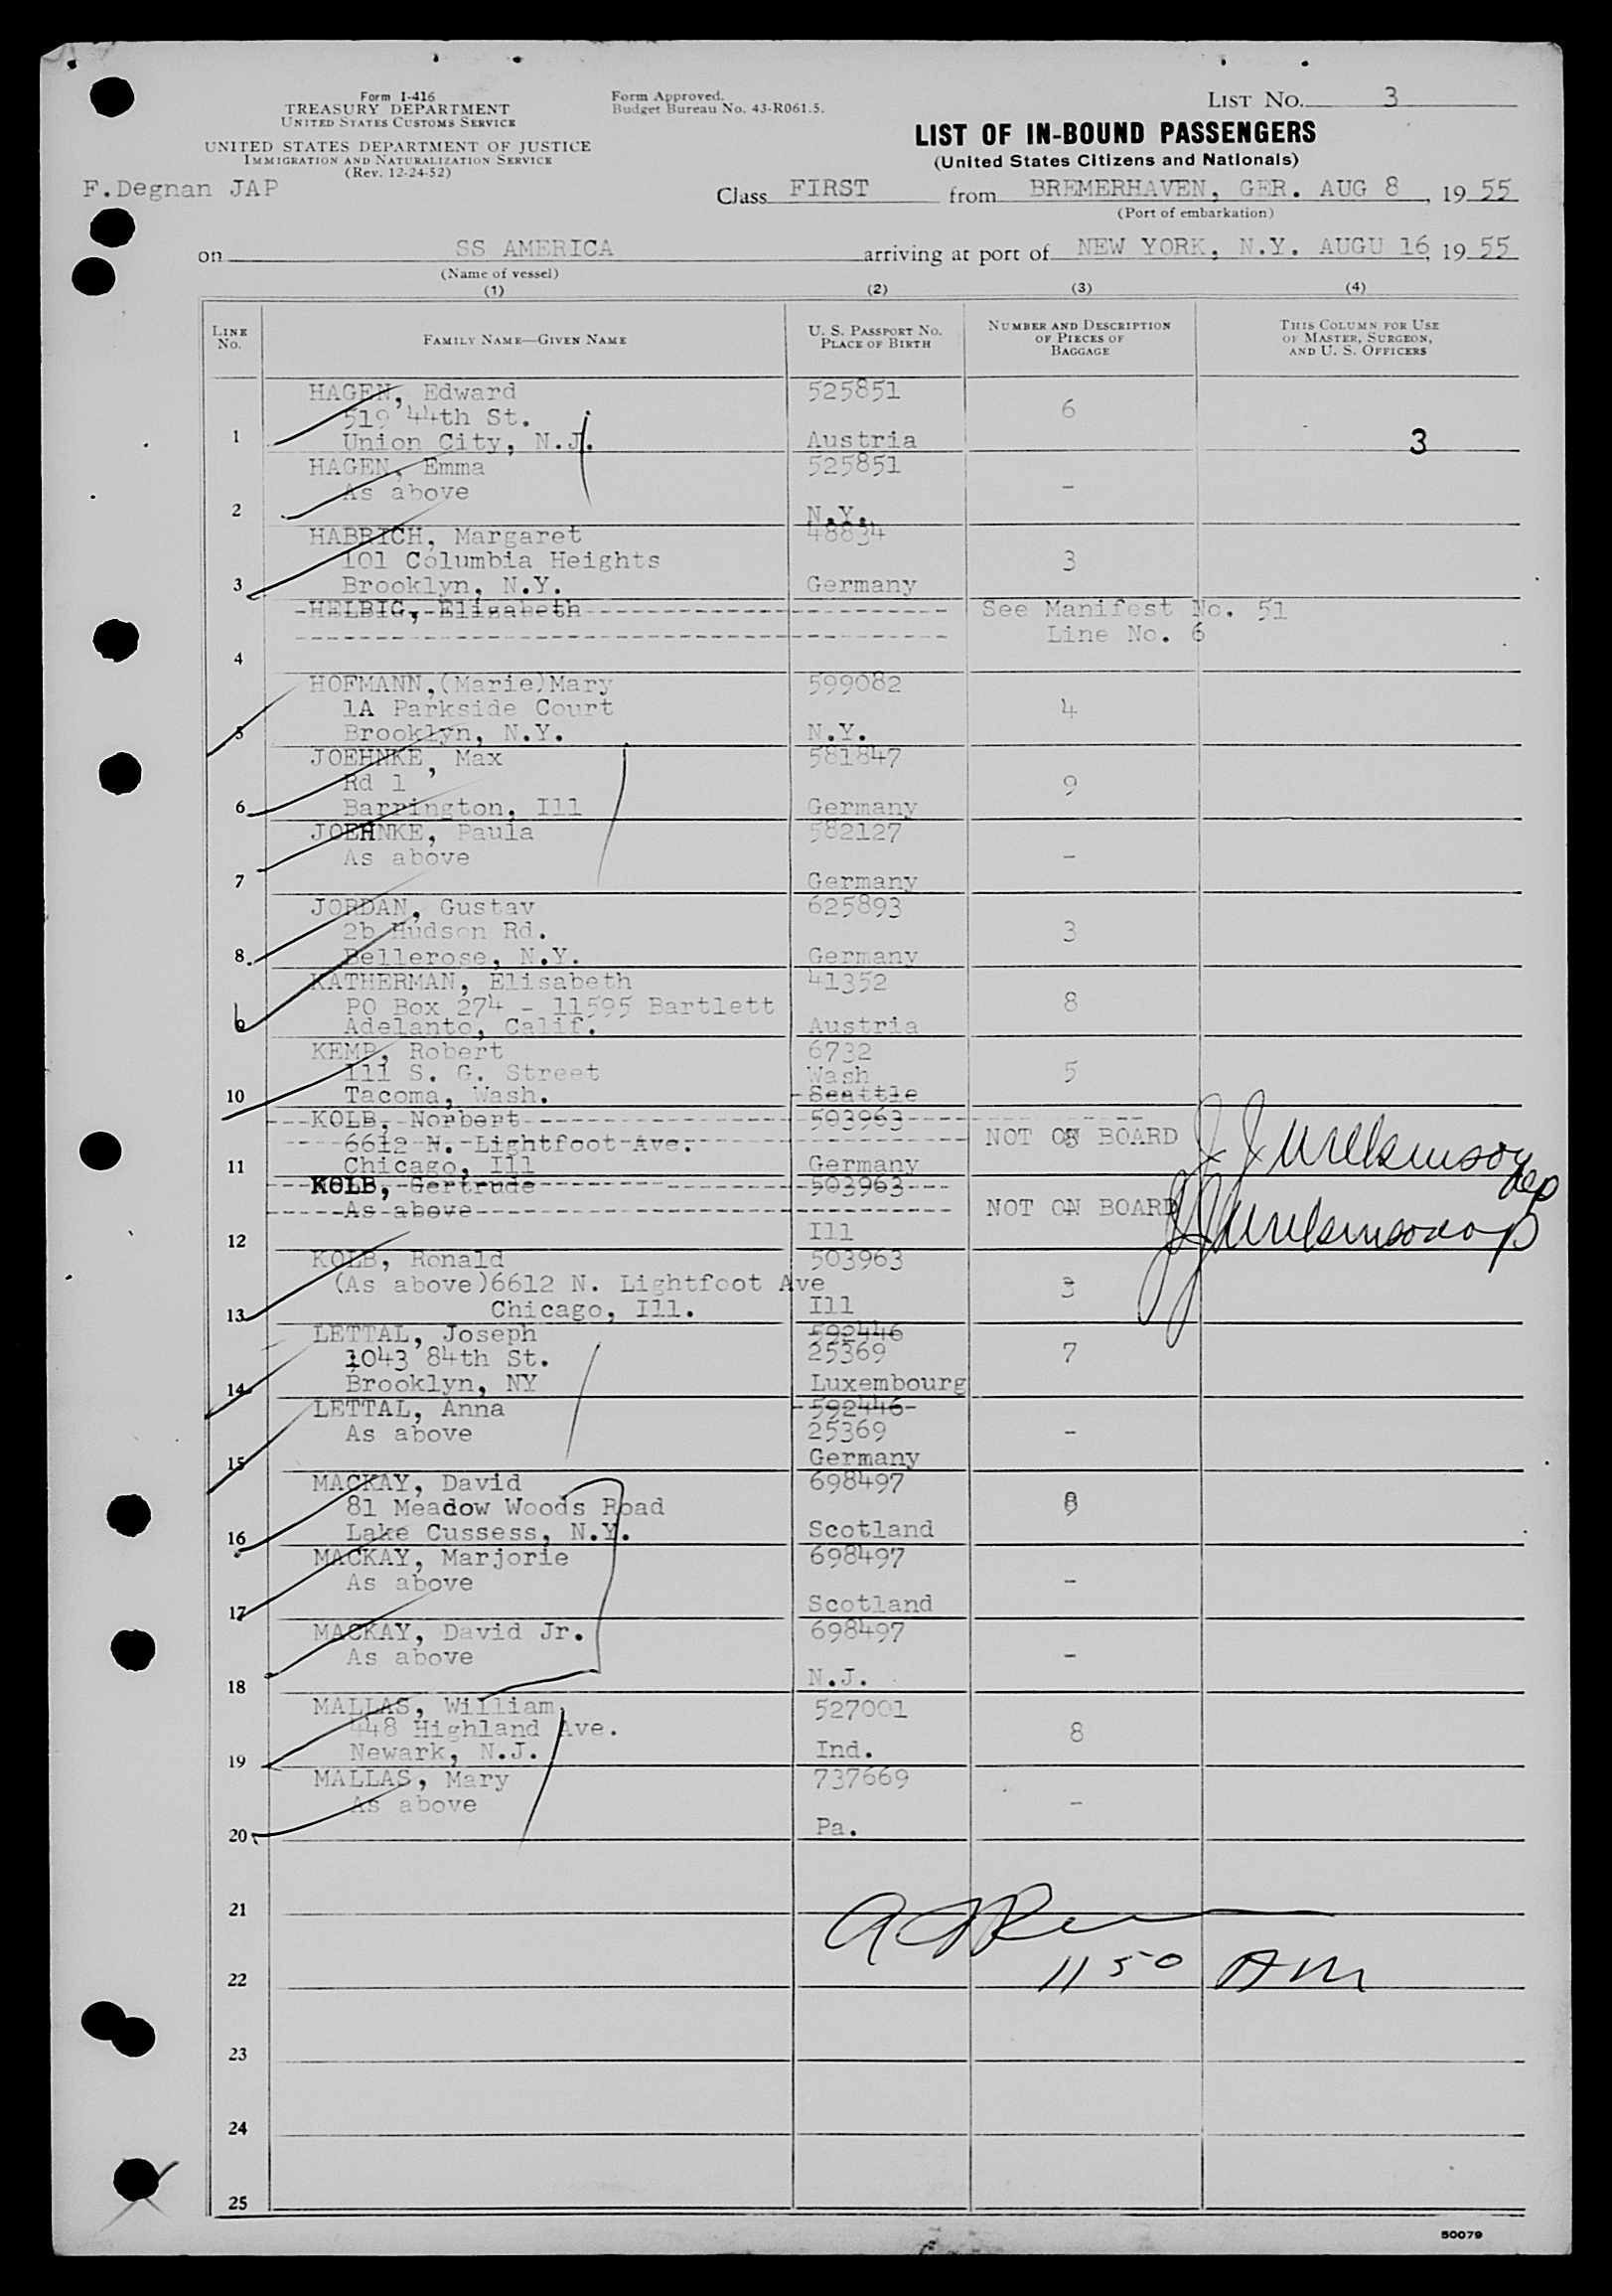 Form I-416
TREASURY DEPARTMENT
UNITED STATES CUSTOMS SERVICE
UNITED STATES DEPARTMENT OF JUSTICE
IMMIGRATION AND NATURALIZATION SERVICE
(Rev. 12-24-52)
Form Approved.
Budget Bureau No. 43-R061.5.
LIST NO. 3
LIST OF IN-BOUND PASSENGERS
(United States Citizens and Nationals)
F.Degnan JAP
Class FIRST from BREMERHAVEN, GER. AUG 8, 19 55
(Port of embarkation)
on SS AMERICA arriving at port of NEW YORK, N.Y. AUGU 16, 19 55
(Name of vessel)
(1) (2) (3) (4)
LINE NO. FAMILY NAME—GIVEN NAME U. S. PASSPORT NO. PLACE OF BIRTH NUMBER AND DESCRIPTION OF PIECES OF BAGGAGE THIS COLUMN FOR USE OF MASTER, SURGEON, AND U. S. OFFICERS
HAGEN, Edward 525851
519 44th St. 6
1 Union City, N.J. Austria 3
HAGEN, Emma 525851
As above -
2 N.Y.
HABRICH, Margaret 48834
101 Columbia Heights 3
3 Brooklyn, N.Y. Germany
HELBIG, Elisabeth See Manifest No. 51
Line No. 6
4
HOFMANN,(Marie)Mary 599082
1A Parkside Court 4
5 Brooklyn, N.Y. N.Y.
JOEHNKE, Max 581847
Rd 1 9
6 Barrington, Ill Germany
JOEHNKE, Paula 582127
As above -
7 Germany
JORDAN, Gustav 625893
2b Hudson Rd. 3
8 Bellerose, N.Y. Germany
KATHERMAN, Elisabeth 41352
PO Box 274 - 11595 Bartlett 8
9 Adelanto, Calif. Austria
KEMP, Robert 6732
111 S. G. Street Wash 5
10 Tacoma, Wash. Seattle
KOLB, Norbert 503963
6612 N. Lightfoot Ave. NOT ON BOARD
11 Chicago, Ill Germany
KOLB, Gertrude 503963
As above NOT ON BOARD
12 Ill
KOLB, Ronald 503963
(As above)6612 N. Lightfoot Ave 3
13 Chicago, Ill. Ill
LETTAL, Joseph 592446
1043 84th St. 25369 7
14 Brooklyn, NY Luxembourg
LETTAL, Anna 592446
As above 25369 -
15 Germany
MACKAY, David 698497
81 Meadow Woods Road
16 Lake Cussess, N.Y. Scotland
MACKAY, Marjorie 698497
As above -
17 Scotland
MACKAY, David Jr. 698497
As above -
18 N.J.
MALLAS, William 527001
448 Highland Ave. 8
19 Newark, N.J. Ind.
MALLAS, Mary 737669
As above -
20 Pa.
21
22 11 50 AM
23
24
25
50079